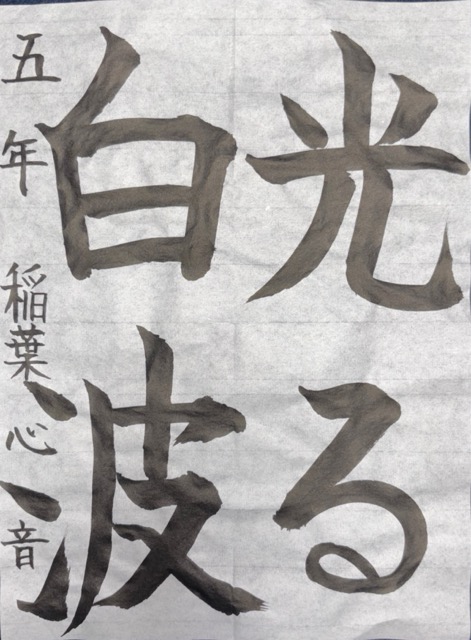 光る
白波
五年 稲葉心音